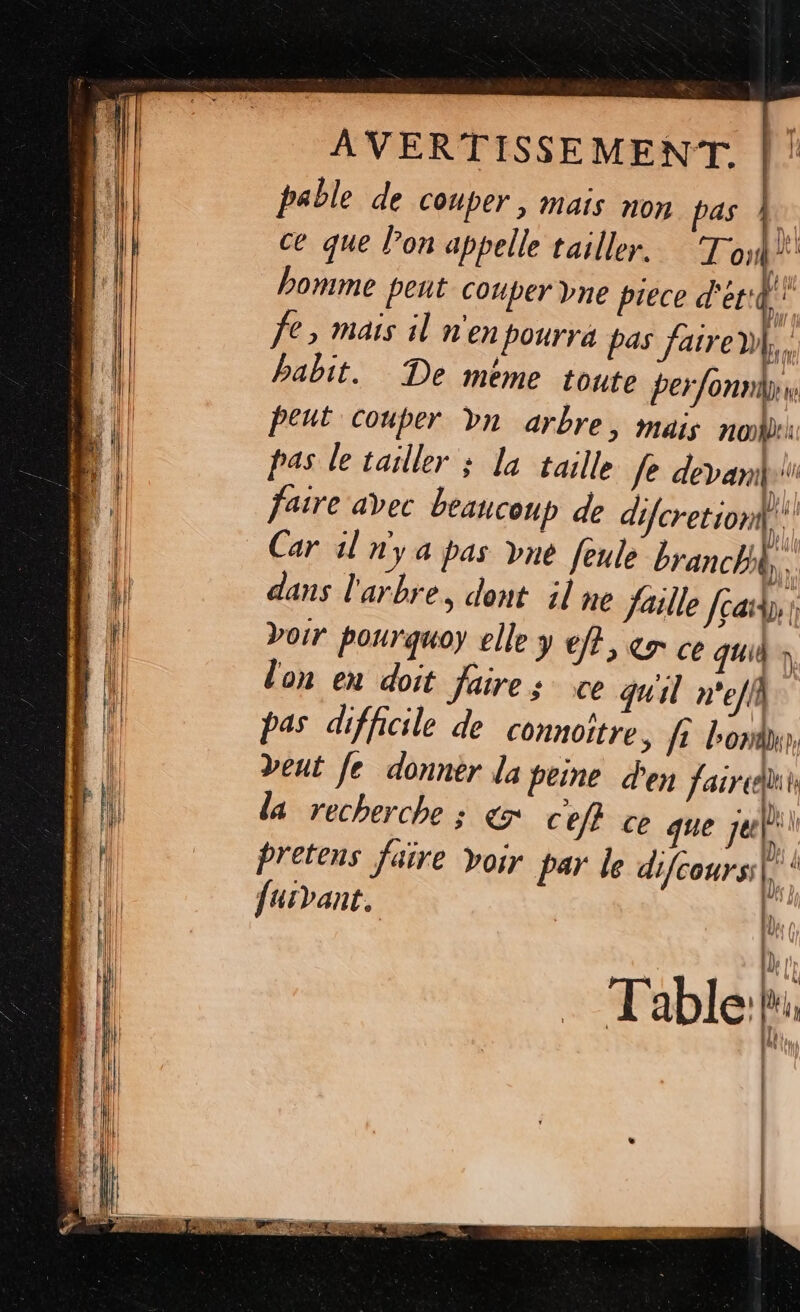 AVERTISSEMENT.
pable de couper, mais non pas
ce que l'on appelle tailler.
homme peut couper vne piece
ſe, mais il n'en pourra pas faire
habit. De méme toute
peut couper vn arbre, mais
pas le tailler ; la taille ſe
faire avec beaucoup de
Car il n'y a pas vne ſeule
dans l'arbre, dont il ne faille
voir pourquoy elle y eſt, & ce
l'on en doit faire ; ce qu'il
pas difficile de connoître, ſi
veut ſe donner la peine d'en
la recherche ; & c'eſt ce que
pretens faire voir par le
ſuivant.
Table